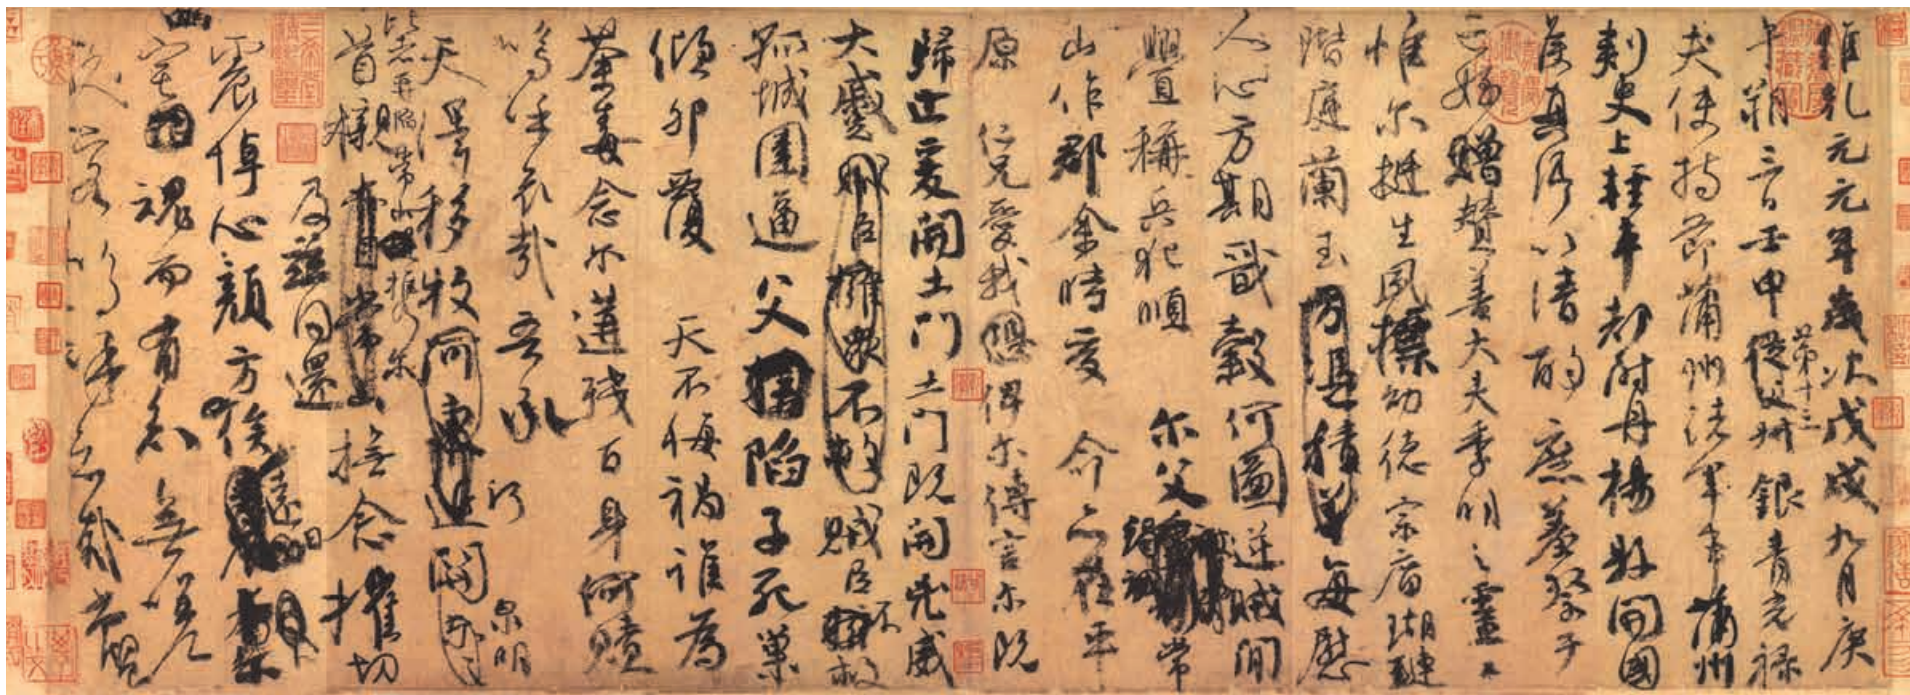 維乾元元年歲次戊戌九月庚
午朔三日壬申第十三從父銀青光祿
夫使持節蒲州諸軍事蒲州
刺史上輕車都尉丹楊縣開國
侯真卿以清酌庶羞祭于
亡姪贈贊善大夫季明之靈曰
惟爾挺生夙標幼德宗廟瑚璉
階庭蘭玉方憑積善每慰
人心方期戩穀何圖逆賊閒
釁稱兵犯順爾父竭誠常
山作郡余時受命亦在平
原仁兄愛我俾爾傳言爾既
歸止爰開土門土門既開凶威
大蹙賊臣擁衆不救賊臣不救
孤城圍逼父陷子死巢
傾卵覆天不悔禍誰為
荼毒念爾遘殘百身何贖
嗚呼哀哉吾承
天澤移牧河關泉明
比者再陷常山攜爾
首櫬及茲同還撫念摧切
震悼心顏方俟遠日
宅魂而有知無嗟
久客嗚呼哀哉尚饗